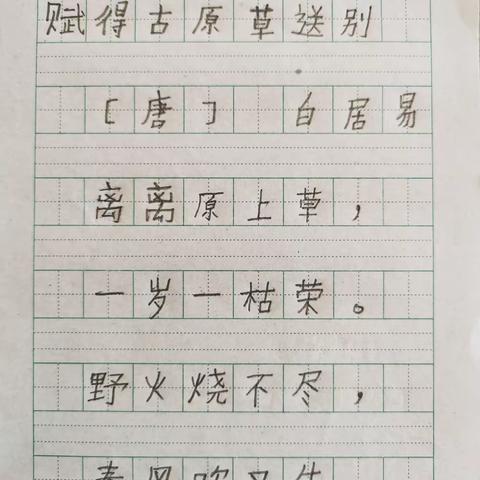 赋得古原草送别
[唐] 白居易
离离原上草，
一岁一枯荣。
野火烧不尽，
春风吹又生